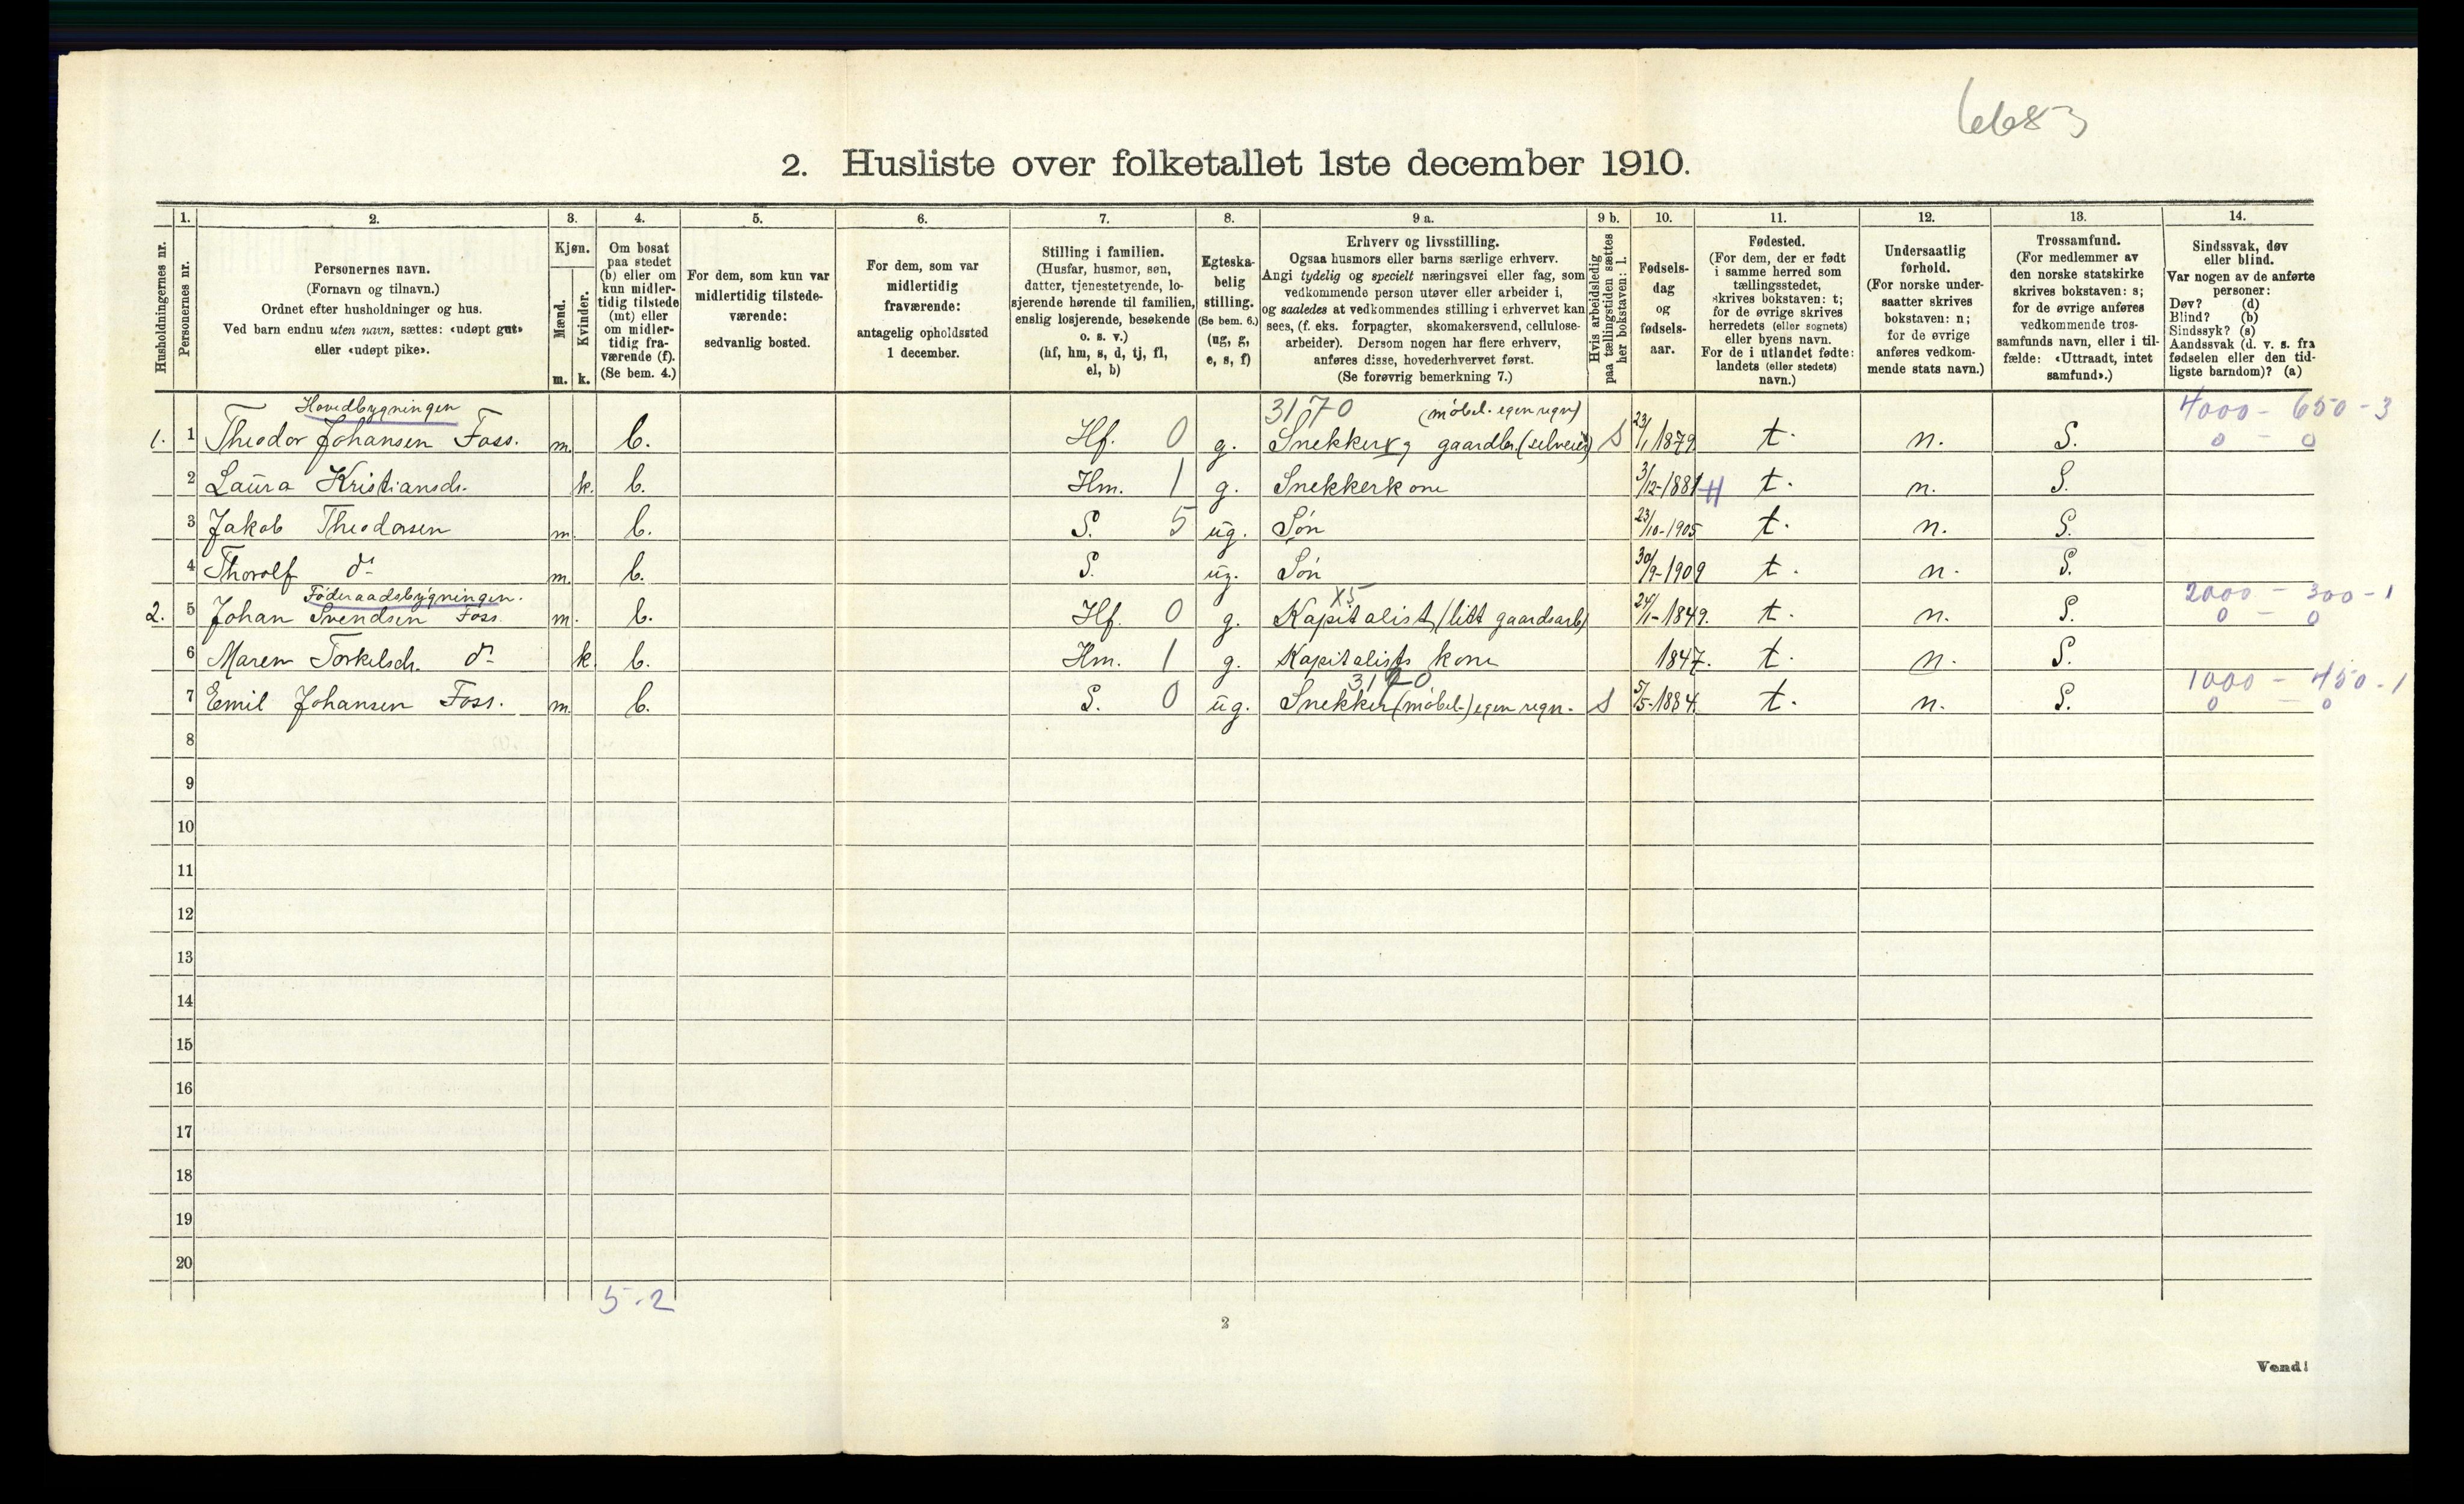 6683
2. Husliste over folketallet 1ste december 1910.
Husholdningernes nr.
1. Personernes nr.
2. Personernes navn.
(Fornavn og tilnavn.)
Ordnet efter husholdninger og hus.
Ved barn endnu uten navn, sættes: «udøpt gut»
eller «udøpt pike».
3. Kjøn.
Mænd. m.
Kvinder. k.
4. Om bosat
paa stedet
(b) eller om
kun midler-
tidig tilstede
(mt) eller
om midler-
tidig fra-
værende (f).
(Se bem. 4.)
5. For dem, som kun var
midlertidig tilstede-
værende:
sedvanlig bosted.
6. For dem, som var
midlertidig
fraværende:
antagelig opholdssted
1 december.
7. Stilling i familien.
(Husfar, husmor, søn,
datter, tjenestetyende, lo-
sjerende hørende til familien,
enslig losjerende, besøkende
o. s. v.)
(hf, hm, s, d, tj, fl,
el, b)
8. Egteska-
belig
stilling.
(Se bem. 6.)
(ug, g,
e, s, f)
9 a. Erhverv og livsstilling.
Ogsaa husmors eller barns særlige erhverv.
Angi tydelig og specielt næringsvei eller fag, som
vedkommende person utøver eller arbeider i,
og saaledes at vedkommendes stilling i erhvervet kan
sees, (f. eks. forpagter, skomakersvend, cellulose-
arbeider). Dersom nogen har flere erhverv,
anføres disse, hovederhvervet først.
(Se forøvrig bemerkning 7.)
9 b. Hvis arbeidsledig
paa tællingstiden sættes
her bokstaven: l.
10. Fødsels-
dag
og
fødsels-
aar.
11. Fødested.
(For dem, der er født
i samme herred som
tællingsstedet,
skrives bokstaven: t;
for de øvrige skrives
herredets (eller sognets)
eller byens navn.
For de i utlandet fødte:
landets (eller stedets)
navn.)
12. Undersaatlig
forhold.
(For norske under-
saatter skrives
bokstaven: n;
for de øvrige
anføres vedkom-
mende stats navn.)
13. Trossamfund.
(For medlemmer av
den norske statskirke
skrives bokstaven: s;
for de øvrige anføres
vedkommende tros-
samfunds navn, eller i til-
fælde: «Uttraadt, intet
samfund».)
14. Sindssvak, døv
eller blind.
Var nogen av de anførte
personer:
Døv? (d)
Blind? (b)
Sindssyk? (s)
Aandssvak (d. v. s. fra
fødselen eller den tid-
ligste barndom)? (a)
Hovedbygningen 3170 (møbel. egen regn) 4000 - 650 - 3
1. 1 Theodor Johansen Foss. m. b. Hf. 0 g. Snekker og gaardbr. (selveier) S 23/1 1879 t. n. S. 0 - 0
2 Laura Kristiansdr. k. b. Hm. 1 g. Snekkerkone 3/12-1881 t. n. S.
3 Jakob Theodorsen m. b. S. 5 ug. Søn 23/10-1905 t. n. S.
4 Thorolf do m. b. S. ug. Søn 30/9-1909 t. n. S.
Føderaadsbygningen. X5 2000 - 300 - 1
2. 5 Johan Svendsen Foss m. b. Hf. 0 g. Kapitalist (litt gaardsarb) 24/1-1849. t. n. S. 0 - 0
6 Maren Torkelsdr. do k. b. Hm. 1 g. Kapitalists kone 1847. t. n. S.
3170 1000 - 450 - 1
7 Emil Johansen Foss. m. b. S. 0 ug. Snekker (møbel-) egen regn. S 5/5-1884. t. n. S. 0 - 0
8
9
10
11
12
13
14
15
16
17
18
19
20
5-2
2
Vend!